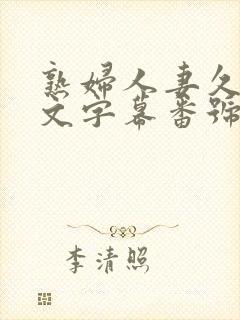 熟婦人妻久
文字幕番號
李清照